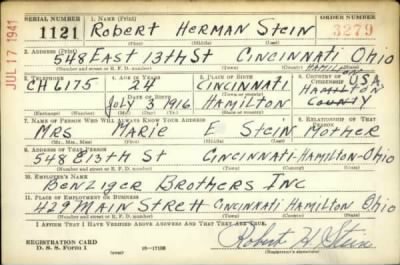 SERIAL NUMBER 1. NAME (Print) ORDER NUMBER
1121 Robert HERMAN Stein 3279
(First) (Middle) (Last)
2. ADDRESS (Print)
548 EAST 13th St CINCINNATI Ohio
HAMILTON
(Number and street or R. F. D. number) (Town) (County) (State)
3. TELEPHONE 4. AGE IN YEARS 5. PLACE OF BIRTH 6. COUNTRY OF CITIZENSHIP
CH 6175 24 CINCINNATI USA
DATE OF BIRTH
JULY 3 1916 HAMILTON HAMILTON COUNTY
(Exchange) (Number) (Mo.) (Day) (Yr.) (State or country)
7. NAME OF PERSON WHO WILL ALWAYS KNOW YOUR ADDRESS 8. RELATIONSHIP OF THAT PERSON
MRS MARIE E STEIN MOTHER
(Mr., Mrs., Miss) (First) (Middle) (Last)
9. ADDRESS OF THAT PERSON
548 E 13th St CINCINNATI-HAMILTON-Ohio
(Number and street or R. F. D. number) (Town) (County) (State)
10. EMPLOYER'S NAME
BENZIGER BROTHERS INC
11. PLACE OF EMPLOYMENT OR BUSINESS
429 MAIN STREtt CINCINNATI HAMILTON Ohio
(Number and street or R. F. D. number) (Town) (County) (State)
I AFFIRM THAT I HAVE VERIFIED ABOVE ANSWERS AND THAT THEY ARE TRUE.
REGISTRATION CARD
D. S. S. Form 1 16—17105 Robert H. Stein
JUL 17 1941